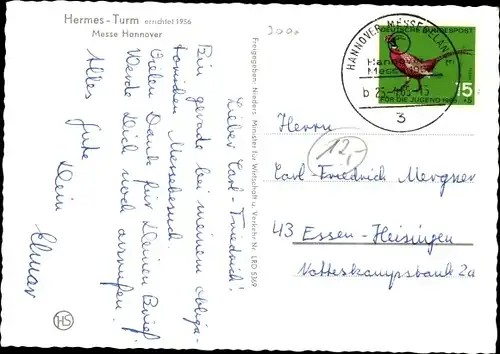 Hermes-Turm errichtet 1956
Messe Hannover
Lieber Carl-Friedrich!
Bin gerade bei meinem obliga-
torischen Messebesuch.
Vielen Dank für Deinen Brief.
Werde Dich noch anrufen.
Alles Gute
Dein Elmar
HS
Freigegeben: Nieders. Minister für Wirtschaft u. Verkehr Nr. LRD 5369
DEUTSCHE BUNDESPOST
15
+5
FÜR DIE JUGEND 1965
HANNOVER MESSEGELÄNDE
Hannover
Messe
3
12,-
Herrn
Carl-Friedrich Mergner
43 Essen-Heisingen
Vatteskampsbank 2a